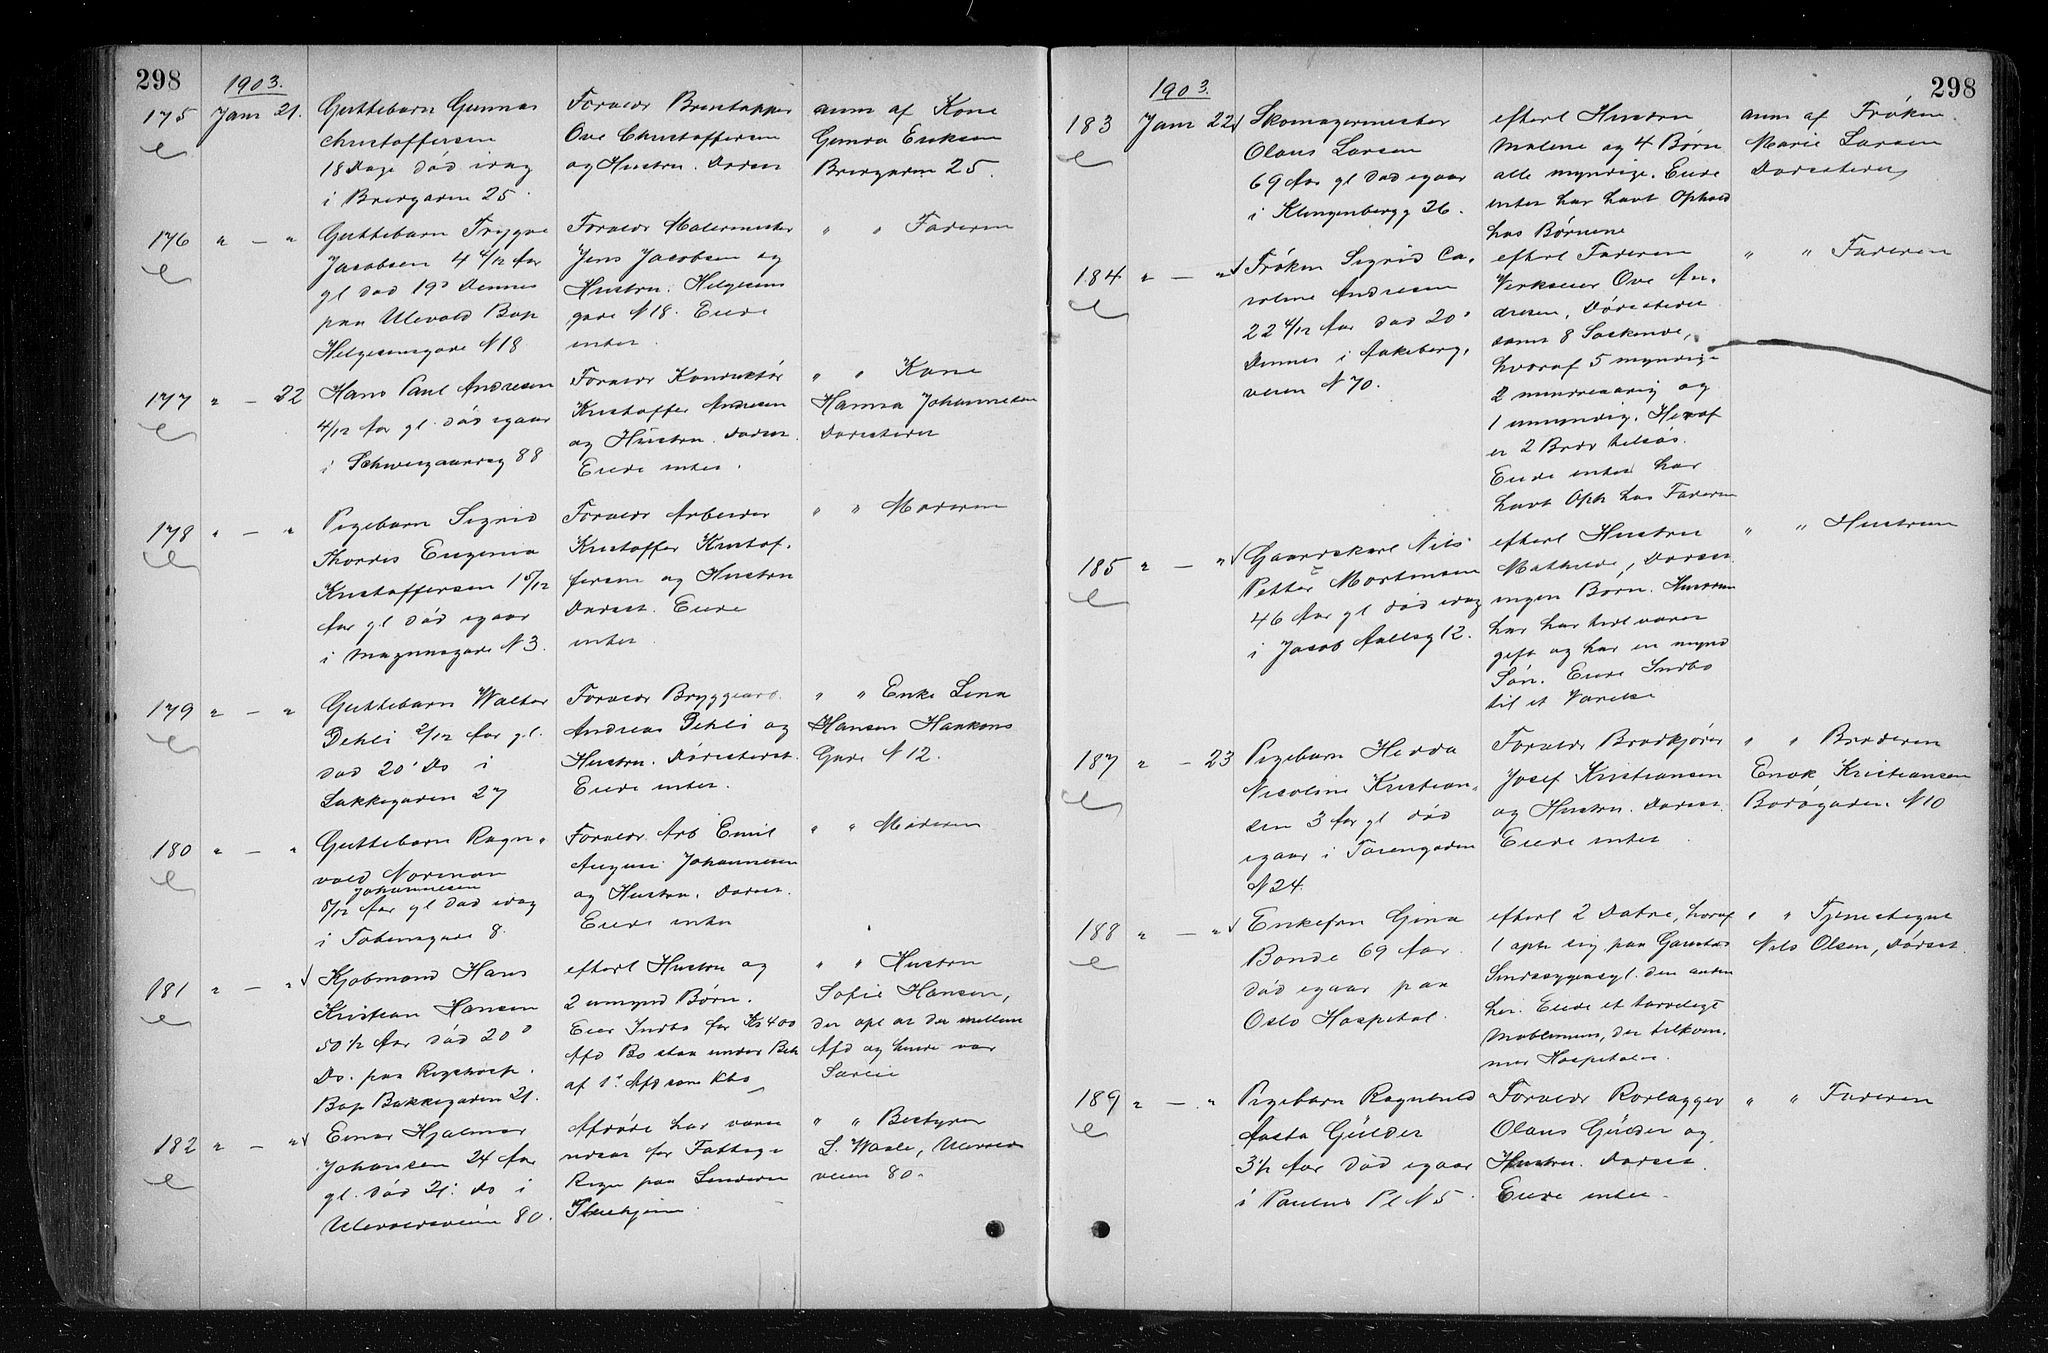 298
1903.
175 Jan 21.
Guttebarn Gunnar
Christoffersen
18 Dage død idag
i Brergaden 25.
Forældr
Ove Christoffersen
og Hustru. Dødsst
anm af Kone
Eriksen
Brergaden 25.
176 " — "
Guttebarn Trygve
Jacobsen 4 4/12 Aar
gl død 19' Dennes
paa Ulevold Bop
Helgesensgade N 18
Forældr Malermester
Jens Jacobsen og
Hustru. Helgesens
gade N 18. Eiede
intet.
" " Faderen
177 " — 22
Hans Paul Andresen
4/12 Aar gl. død igaar
i Schweigaardsg 88
Forældr Konduktør
Kristoffer Andresen
og Hustru. Dødsst.
Eiede intet.
" " Kone
Hanna Johannesen
Dødsstedet
178 " — "
Pigebarn Sigrid
Thordis Eugenia
Kristoffersen 1 5/12
Aar gl død igaar
i Magnusgade N 3.
Forældr Arbeider
Kristoffer Kristof-
fersen og Hustru
Dødsst. Eiede
intet.
" " Moderen
179 " — "
Guttebarn Walter
Dehli 2/12 Aar gl.
død 20' Ds i
Lakkegaden 27
Forældr Bryggearb.
Andreas Dehli og
Hustru. Dødsstedet.
Eiede intet.
" " Enke Lina
Hansen Haakons
Gade N 12.
180 " — "
Guttebarn Ragn-
vald Norman
Johannesen
5/12 Aar gl død idag
i Toftensgade 8.
Forældr. Arb Emil
August Johannesen
og Hustru. Dødsst.
Eiede intet
" " Moderen
181 " — "
Kjøbmand Hans
Kristian Hansen
50 1/2 Aar død 20'
Ds. paa Rigshosp.
Bop Bakkegaden 21.
efterl Hustru og
2 umynd Børn.
Eier Indbo for Kr 400
Afd Bo staar under Beh
af 1' Afd som Kbo
" " Hustru
Sofie Hansen,
der opl at der mellem
Afd og hende var
Særeie
182 " — "
Einar Hjalmar
Johansen 24 Aar
gl. død 21' ds i
Ullevoldsveien 80.
Afdøde har været
undsat for Fattigs
Regn paa Lindern
Pleiehjem.
" " Bestyrer
L. Waale, Ullevolds
veien 80.
298
1903.
183 Jan 22
Skomagermester
Olaus Larsen
69 Aar gl død igaar
i Klingenbergg 26.
efterl Hustru
Malene og 4 Børn
alle myndige. Eiede
intet har havt Ophold
hos Børnene
anm af Frøken
Marie Larsen
Dødsstedet
184 " — "
Frøken Sigrid Ca-
roline Andresen
22 4/12 Aar død 20'
Dennes i Aakeberg-
veien N 70.
efterl Faderen
Verkseier Ove An-
dresen, Dødsstedet
samt 8 Søskende,
hvoraf 5 myndige
2 mindreaarig og
1 umyndig. Heraf
er 2 Brdr tilsøs.
Eiede intet har
havt Oph hos Faderen
" " Faderen
185 " — "
Gaardskarl Nils
Petter Mortensen
46 Aar gl død idag
i Jacob Aallsg 12.
efterl Hustru
Mathilde, Dødsst
ingen Børn. Hustruen
har før været
gift og har en mynd
Søn. Eiede Indbo
til et Værelse
" " Hustruen
187 " — 23
Pigebarn Hedda
Nicoline Kristian-
sen 3 Aar gl død
igaar i Farengaden
N 24.
Forældr Brødkjører
Josef Kristiansen
og Hustru. Dødsst.
Eiede intet.
" " Broderen
Enok Kristiansen
Borggaden N 10
188 " — "
Enkefru Gina
Bonde 69 Aar
død igaar paa
Oslo Hospital.
efterl 2 Døtre, hvoraf
1 opht sig paa Gaustad
Sindssygeasyl. den anden
her. Eiede et tarveligt
Møblement, der tilkom-
mer Hospitalet.
" " Tjenestegut
Nils Olsen, Dødsst.
189 " — "
Pigebarn Ragnhild
Aasta Gulder
3 1/2 Aar død igaar
i Paulus Pl N 5.
Forældr Rørlægger
Olaus Gulder og
Hustru. Dødsst.
Eiede intet.
" " Faderen